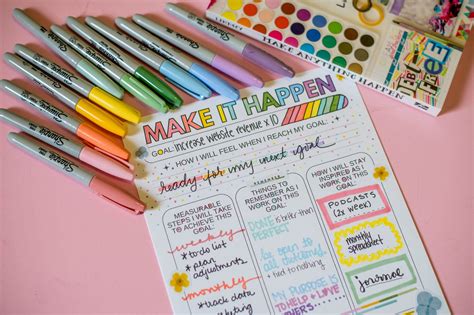 MAKE IT HAPPEN
GOAL: increase website revenue x 10
HOW I WILL FEEL WHEN I REACH MY GOAL:
ready for my next goal
MEASURABLE
STEPS I WILL TAKE
TO ACHIEVE THIS
GOAL:
weekly
• to do list
• plan
adjustments
monthly
• track data
THINGS TO
REMEMBER AS I
WORK ON THIS
GOAL:
DONE is better than
PERFECT
be open to
all outcomes
+ try something
MY PURPOSE IS
TO HELP + LOVE
OTHERS!
HOW I WILL STAY
INSPIRED AS I
WORK ON THIS
GOAL:
PODCASTS
(2x week)
monthly
spreadsheet
journal
MAKE ANYTHING HAPPEN
LIFE
FREE
Sharpie
Sharpie
Sharpie
Sharpie
Sharpie
Sharpie
Sharpie
Sharpie